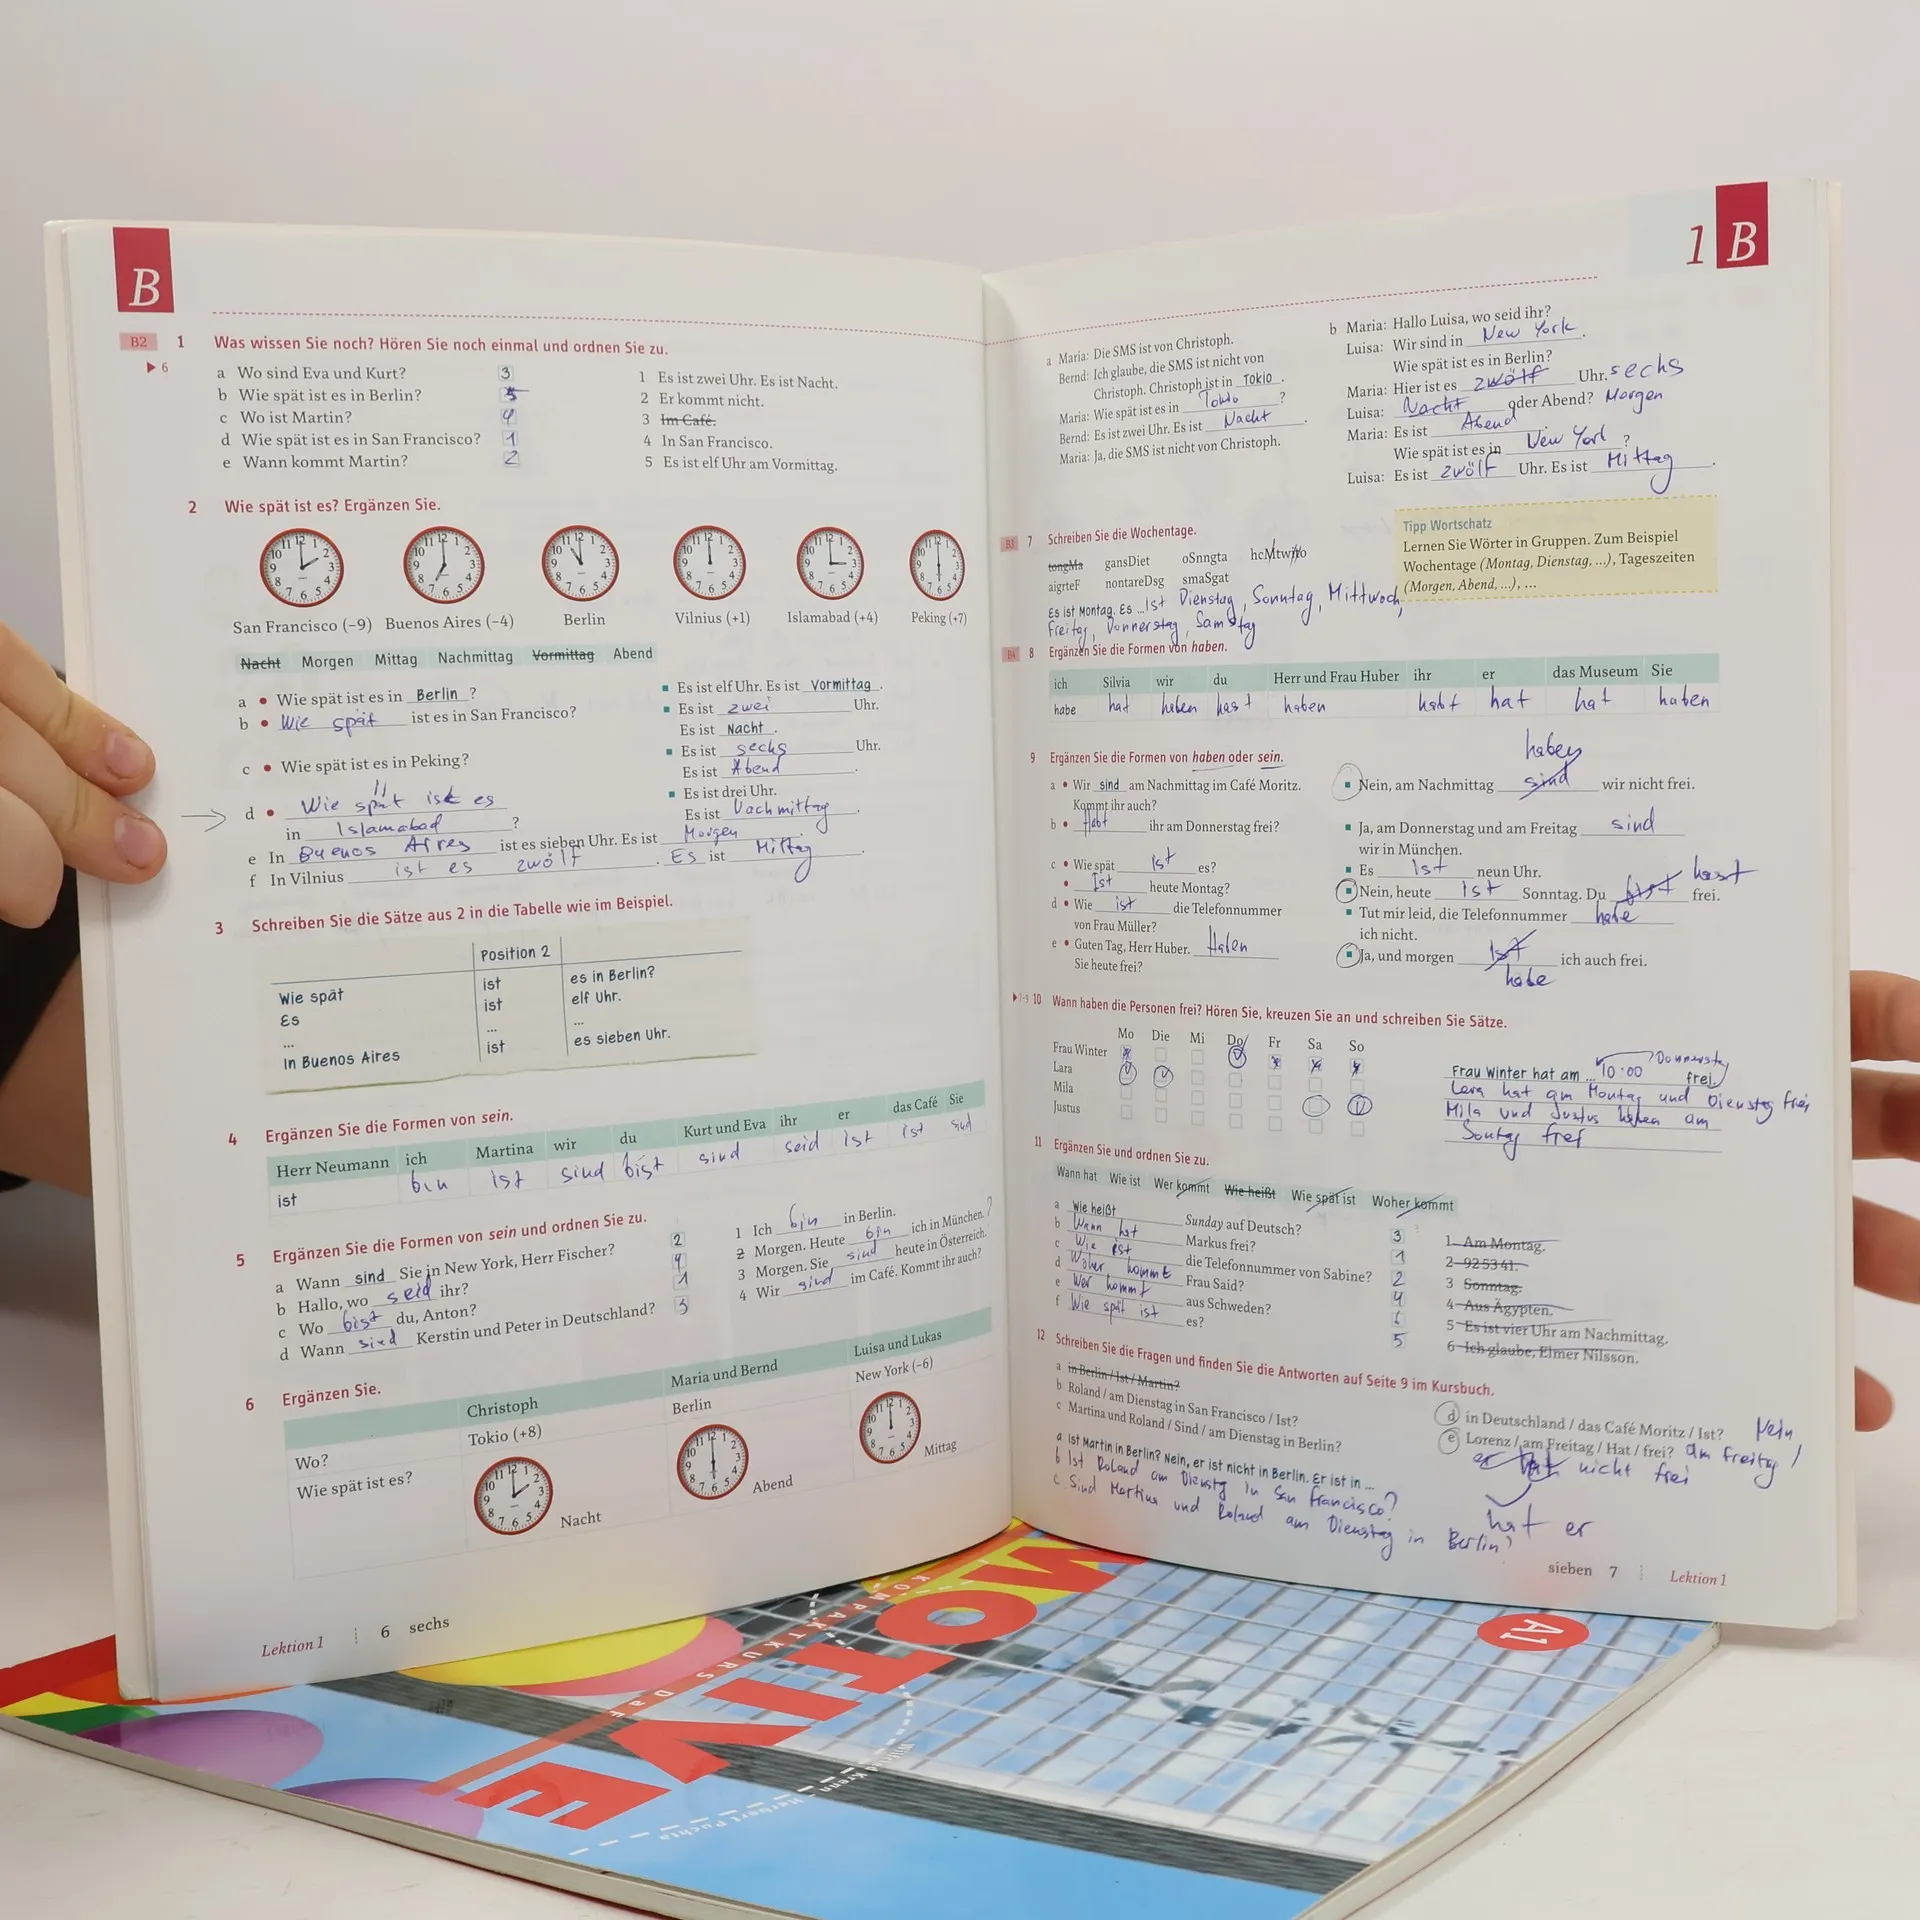 B
B2 1 Was wissen Sie noch? Hören Sie noch einmal und ordnen Sie zu.
▶ 6
a Wo sind Eva und Kurt? 3
b Wie spät ist es in Berlin? 5
c Wo ist Martin? 4
d Wie spät ist es in San Francisco? 1
e Wann kommt Martin? 2
1 Es ist zwei Uhr. Es ist Nacht.
2 Er kommt nicht.
3 Im Café.
4 In San Francisco.
5 Es ist elf Uhr am Vormittag.
2 Wie spät ist es? Ergänzen Sie.
San Francisco (−9) Buenos Aires (−4) Berlin Vilnius (+1) Islamabad (+4) Peking (+7)
Nacht Morgen Mittag Nachmittag Vormittag Abend
a • Wie spät ist es in Berlin ?
b • Wie spät ist es in San Francisco?
c • Wie spät ist es in Peking?
d • Wie spät ist es
in Islamabad ?
▪ Es ist elf Uhr. Es ist Vormittag.
▪ Es ist zwei Uhr.
Es ist Nacht.
▪ Es ist sechs Uhr.
Es ist Abend.
▪ Es ist drei Uhr.
Es ist Nachmittag.
e In Buenos Aires ist es sieben Uhr. Es ist Morgen.
f In Vilnius ist es zwölf. Es ist Mittag.
3 Schreiben Sie die Sätze aus 2 in die Tabelle wie im Beispiel.
Position 2
Wie spät ist es in Berlin?
Es ist elf Uhr.
... ... ...
In Buenos Aires ist es sieben Uhr.
4 Ergänzen Sie die Formen von sein.
Herr Neumann ich Martina wir du Kurt und Eva ihr er das Café Sie
ist bin ist sind bist sind seid ist ist sind
5 Ergänzen Sie die Formen von sein und ordnen Sie zu.
a Wann sind Sie in New York, Herr Fischer? 2
b Hallo, wo seid ihr? 4
c Wo bist du, Anton? 1
d Wann sind Kerstin und Peter in Deutschland? 3
1 Ich bin in Berlin.
2 Morgen. Heute bin ich in München.?
3 Morgen. Sie sind heute in Österreich.
4 Wir sind im Café. Kommt ihr auch?
6 Ergänzen Sie.
Christoph Maria und Bernd Luisa und Lukas
Wo? Tokio (+8) Berlin New York (−6)
Wie spät ist es? Nacht Abend Mittag
Lektion 1 6 sechs
1 B
a Maria: Die SMS ist von Christoph.
Bernd: Ich glaube, die SMS ist nicht von
Christoph. Christoph ist in Tokio.
Maria: Wie spät ist es in Tokio ?
Bernd: Es ist zwei Uhr. Es ist Nacht.
Maria: Ja, die SMS ist nicht von Christoph.
b Maria: Hallo Luisa, wo seid ihr?
Luisa: Wir sind in New York.
Wie spät ist es in Berlin?
Maria: Hier ist es zwölf Uhr. sechs
Luisa: Nacht oder Abend? Morgen
Maria: Es ist Abend
Wie spät ist es in New York ?
Luisa: Es ist zwölf Uhr. Es ist Mittag.
B3 7 Schreiben Sie die Wochentage.
tongMa gansDiet oSnngta hcMtwito
aigrteF nontareDsg smaSgat
Es ist Montag. Es ... Ist Dienstag, Sonntag, Mittwoch,
Freitag, Donnerstag, Samstag
Tipp Wortschatz
Lernen Sie Wörter in Gruppen. Zum Beispiel
Wochentage (Montag, Dienstag, ...), Tageszeiten
(Morgen, Abend, ...), ...
B4 8 Ergänzen Sie die Formen von haben.
ich Silvia wir du Herr und Frau Huber ihr er das Museum Sie
habe hat haben hast haben habt hat hat haben
9 Ergänzen Sie die Formen von haben oder sein.
a • Wir sind am Nachmittag im Café Moritz.
Kommt ihr auch?
b • Habt ihr am Donnerstag frei?
c • Wie spät ist es?
• Ist heute Montag?
d • Wie ist die Telefonnummer
von Frau Müller?
e • Guten Tag, Herr Huber. Haben
Sie heute frei?
haben
▪ Nein, am Nachmittag sind wir nicht frei.
▪ Ja, am Donnerstag und am Freitag sind
wir in München.
▪ Es ist neun Uhr.
▪ Nein, heute ist Sonntag. Du bist hast frei.
▪ Tut mir leid, die Telefonnummer habe
ich nicht.
▪ Ja, und morgen ist ich auch frei.
habe
10 Wann haben die Personen frei? Hören Sie, kreuzen Sie an und schreiben Sie Sätze.
Mo Die Mi Do Fr Sa So
Frau Winter
Lara
Mila
Justus
Donnerstag
Frau Winter hat am ... 10:00 frei.
Lara hat am Montag und Dienstag frei
Mila und Justus haben am
Sontag frei
11 Ergänzen Sie und ordnen Sie zu.
Wann hat Wie ist Wer kommt Wie heißt Wie spät ist Woher kommt
a Wie heißt Sunday auf Deutsch? 3
b Wann hat Markus frei? 1
c Wie ist die Telefonnummer von Sabine? 2
d Woher kommt Frau Said? 4
e Wer kommt aus Schweden? 6
f Wie spät ist es? 5
1 Am Montag.
2 92 53 41.
3 Sonntag.
4 Aus Ägypten.
5 Es ist vier Uhr am Nachmittag.
6 Ich glaube, Elmer Nilsson.
12 Schreiben Sie die Fragen und finden Sie die Antworten auf Seite 9 im Kursbuch.
a in Berlin / Ist / Martin?
b Roland / am Dienstag in San Francisco / Ist?
c Martina und Roland / Sind / am Dienstag in Berlin?
d in Deutschland / das Café Moritz / Ist? Nein
e Lorenz / am Freitag / Hat / frei? am freitag /
er hat nicht frei
hat er
a Ist Martin in Berlin? Nein, er ist nicht in Berlin. Er ist in ...
b Ist Roland am Dienstg in San Francisco?
c Sind Martina und Roland am Dienstag in Berlin?
sieben 7 Lektion 1
A1
MOTIVE
KOMPAKTKURS DaF
Wilfried Krenn – Herbert Puchta